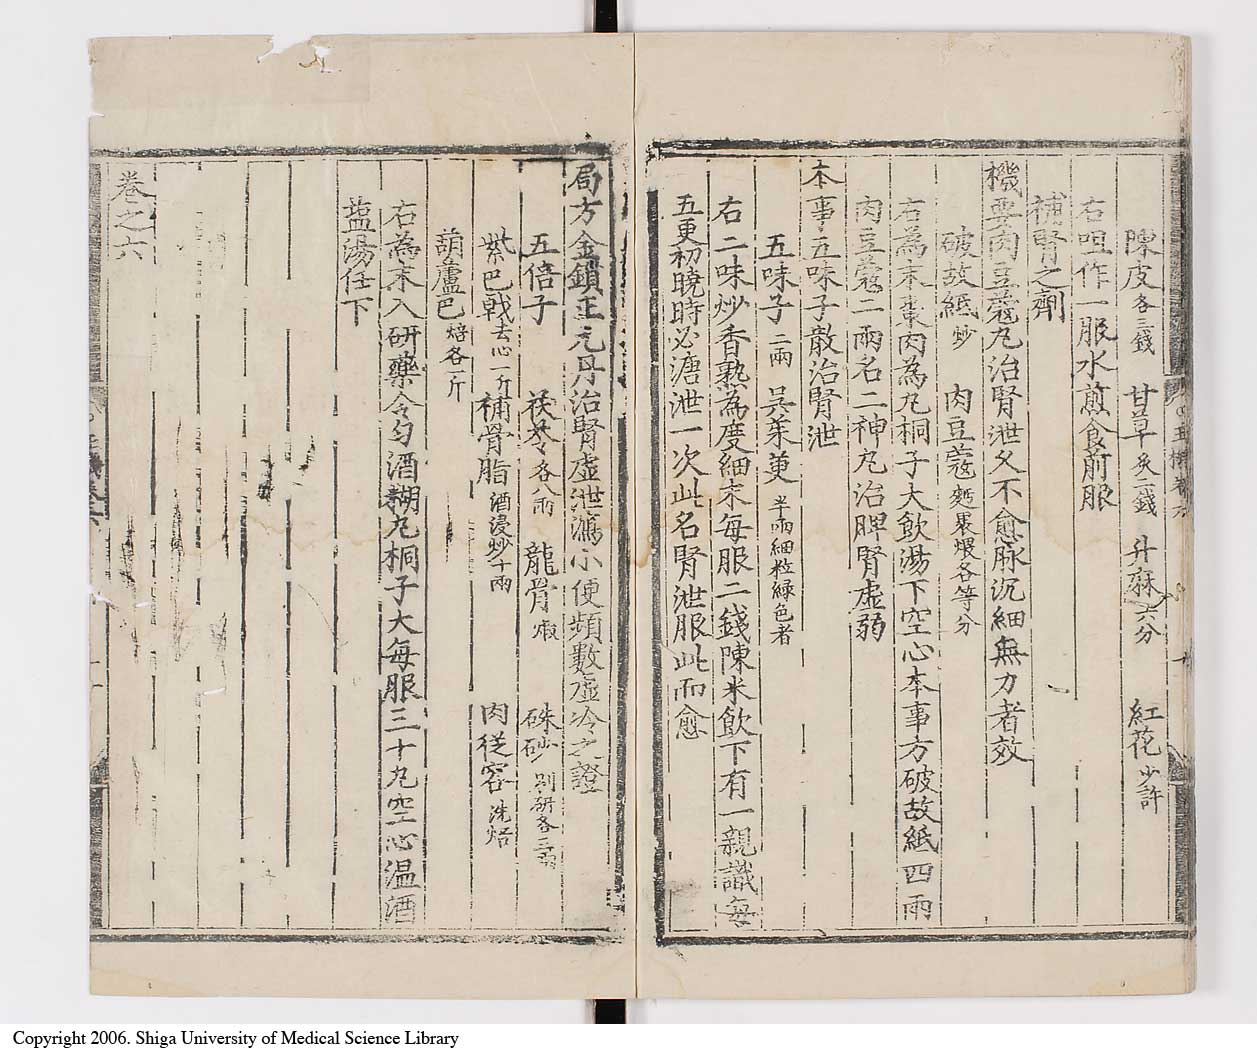 陳皮各三錢 甘草炙二錢 升麻六分 紅花少許
右㕮作一服水煎食前服
補腎之劑
機要肉豆蔻丸治腎泄久不愈脉沉細無力者效
破故紙炒 肉豆蔻麪裹煨各等分
右為末棗肉為丸桐子大飲湯下空心本事方破故紙四兩
肉豆蔻二兩名二神丸治脾腎虛弱
本事五味子散治腎泄
五味子二兩 吳茱萸半兩細粒綠色者
右二味炒香熟為度細末每服二錢陳米飲下有一親識每
五更初曉時必溏泄一次此名腎泄服此而愈
局方金鎖正元丹治腎虛泄瀉小便頻數虛冷之證
五倍子 茯苓各八兩 龍骨煆 硃砂別研各三兩
紫巴戟去心一斤 補骨脂酒浸炒十兩 肉從容洗焙
葫蘆巴焙各一斤
右為末入研藥令勻酒糊丸桐子大每服三十丸空心溫酒
塩湯任下
卷之六
Copyright 2006. Shiga University of Medical Science Library